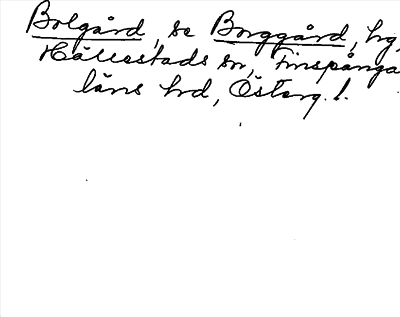 Bolgård, se Borggård, hg,
Hällestads sn, Finspånga
läns hd, Österg. l.